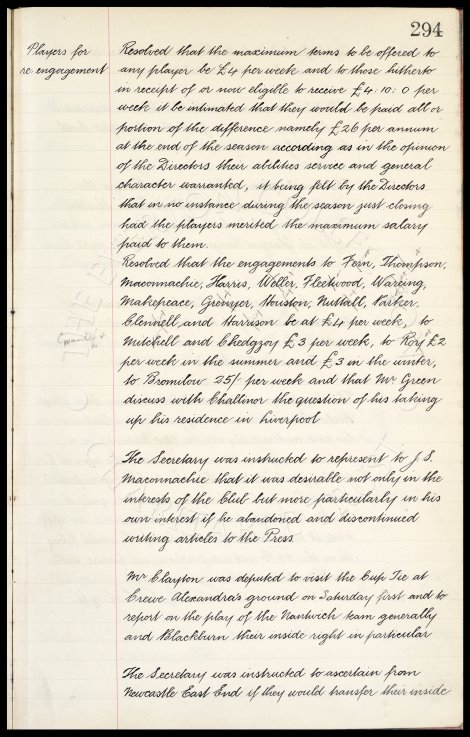 294
Players for
re-engagement
Resolved that the maximum terms to be offered to
any player be £4 per week and to those hitherto
in receipt of or now eligible to receive £4:10:0 per
week it be intimated that they would be paid all or
portion of the difference namely £26 per annum
at the end of the season according as in the opinion
of the Directors their abilities service and general
character warranted, it being felt by the Directors
that in no instance during the season just closing
had the players merited the maximum salary
paid to them.
Resolved that the engagements to Fern, Thompson,
Maconnachie, Harris, Weller, Fleetwood, Wareing,
Makepeace, Grenyer, Houston, Nuttall, Parker,
Clennell, and Harrison be at £4 per week, to
Mitchell and Chedgzoy £3 per week, to Roy £2
per week in the summer and £3 in the winter,
to Bromilow 25/- per week and that Mr Green
discuss with Challinor the question of his taking
up his residence in Liverpool
The Secretary was instructed to represent to J. S.
Maconnachie that it was desirable not only in the
interests of the Club but more particularly in his
own interest if he abandoned and discontinued
writing articles to the Press
Mr Clayton was deputed to visit the Cup Tie at
Crewe Alexandra's ground on Saturday first and to
report on the play of the Nantwich team generally
and Blackburn their inside right in particular
The Secretary was instructed to ascertain from
Newcastle East End if they would transfer their inside